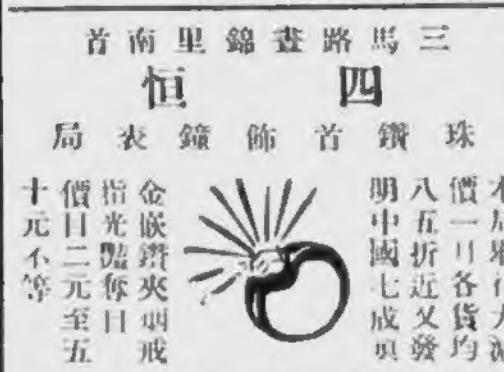 三馬路晝錦里南首
四恒
珠鑽首飾鐘表局
價一月各貨均
八五折近又發
明中國七成
金嵌鑽夾戒
指光豔奪目
價目二元至五
十元不等